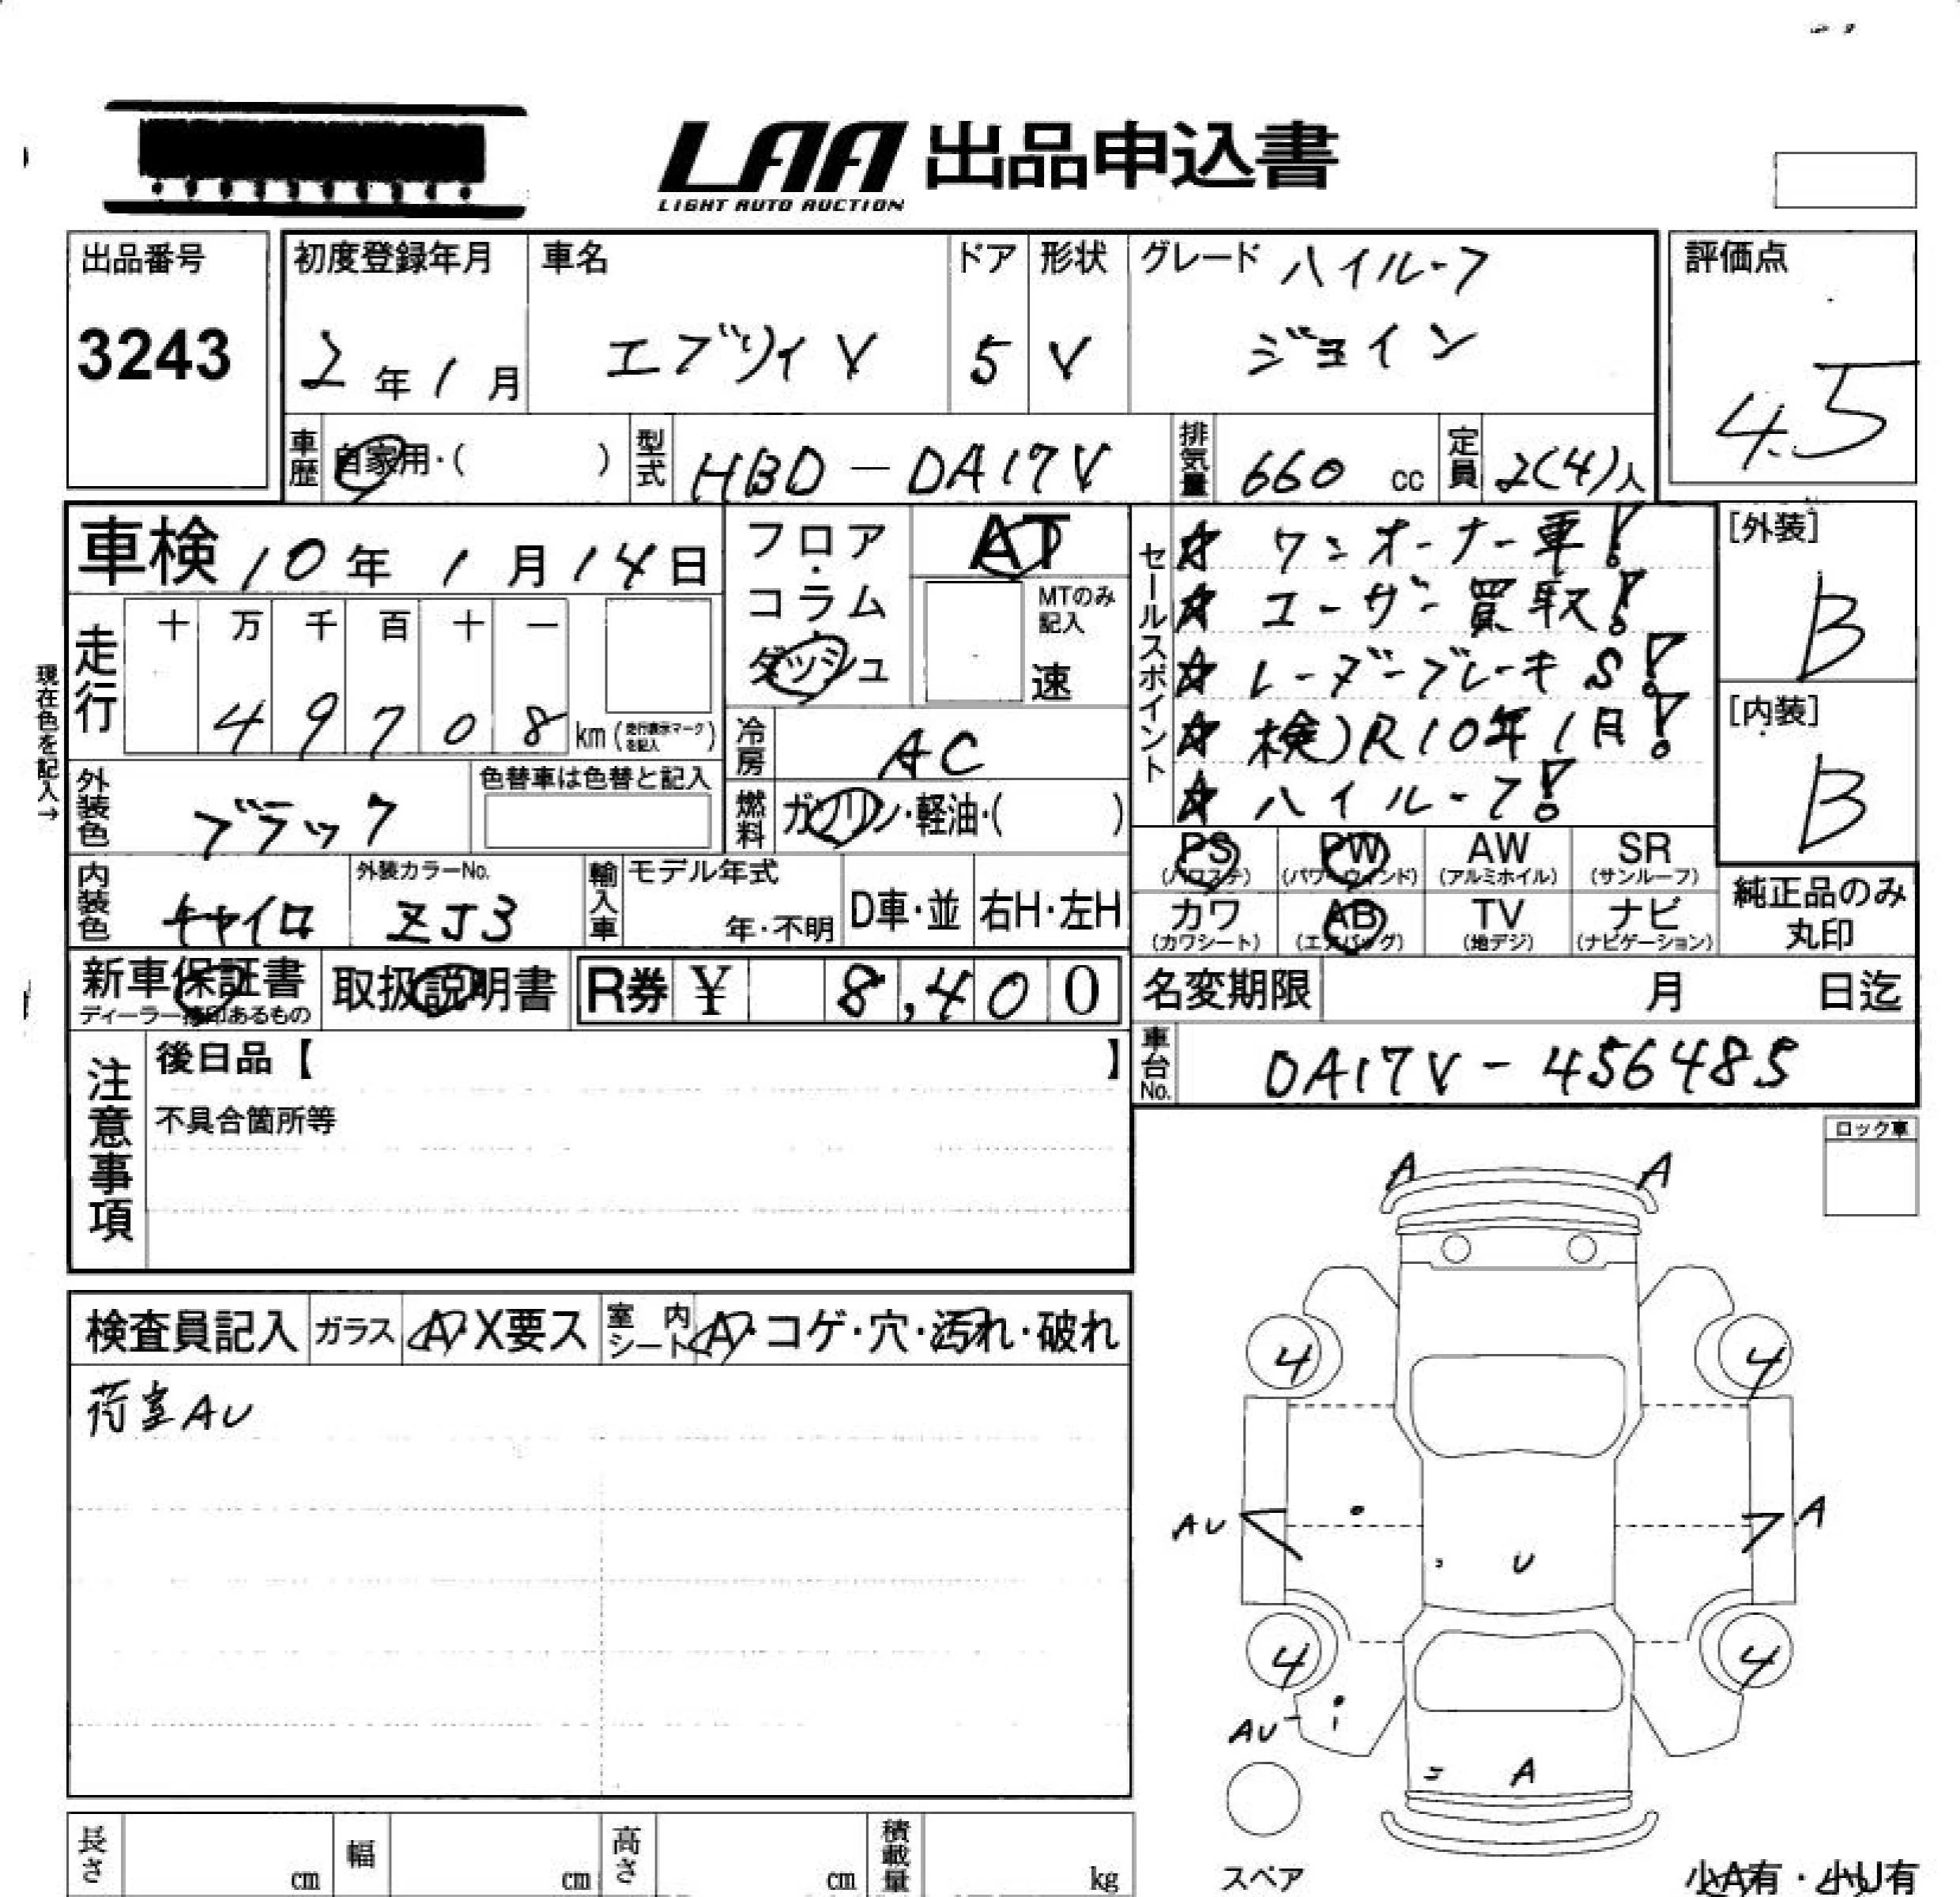 LAA 出品申込書
LIGHT AUTO AUCTION
出品番号
3243
初度登録年月
2年1月
車名
エブリィV
ドア
5
形状
V
グレード ハイルーフ
ジョイン
評価点
4.5
車歴 自家用・( )
型式 HBD-DA17V
排気量 660 cc
定員 2(4)人
車検 10年1月14日
フロア・コラム
ダッシュ
AT
MTのみ記入
速
セールスポイント
☆ワンオーナー車!
☆ユーザー買取!
☆レーダーブレーキS!
☆検)R10年1月!
☆ハイルーフ!
[外装]
B
[内装]
B
現在色を記入→
走行
十 万 千 百 十 一
4 9 7 0 8 km (走行表示マークを記入)
冷房 AC
燃料 ガソリン・軽油・( )
外装色 ブラック
色替車は色替と記入
内装色 チャイロ
外装カラーNo.
ZJ3
輸入車 モデル年式
年・不明
D車・並
右H・左H
PS
(パワステ)
PW
(パワーウィンド)
AW
(アルミホイル)
SR
(サンルーフ)
カワ
(カワシート)
AB
(エアバッグ)
TV
(地デジ)
ナビ
(ナビゲーション)
純正品のみ
丸印
新車保証書
ディーラー捺印あるもの
取扱説明書
R券 ¥ 8,400
名変期限 月 日迄
車台No. DA17V-456485
注意事項
後日品【 】
不具合箇所等
ロック車
検査員記入 ガラス A・X要ス 室内シート A・コゲ・穴・汚れ・破れ
荷室AU
A A
4 4
AU A
U
4 4
AU
A
スペア
小A有・小U有
長さ cm
幅 cm
高さ cm
積載量 kg